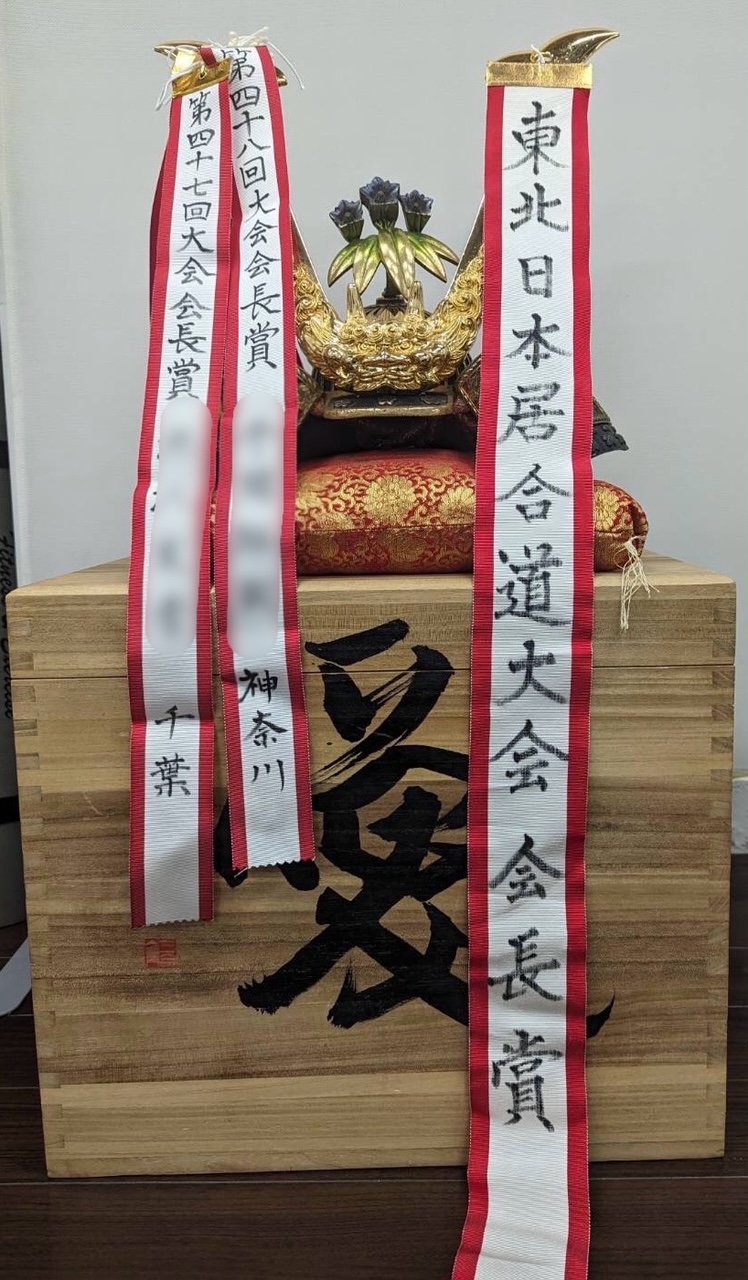 東北日本居合道大会 会長賞
第四十八回大会会長賞
神奈川
第四十七回大会会長賞
千葉
愛